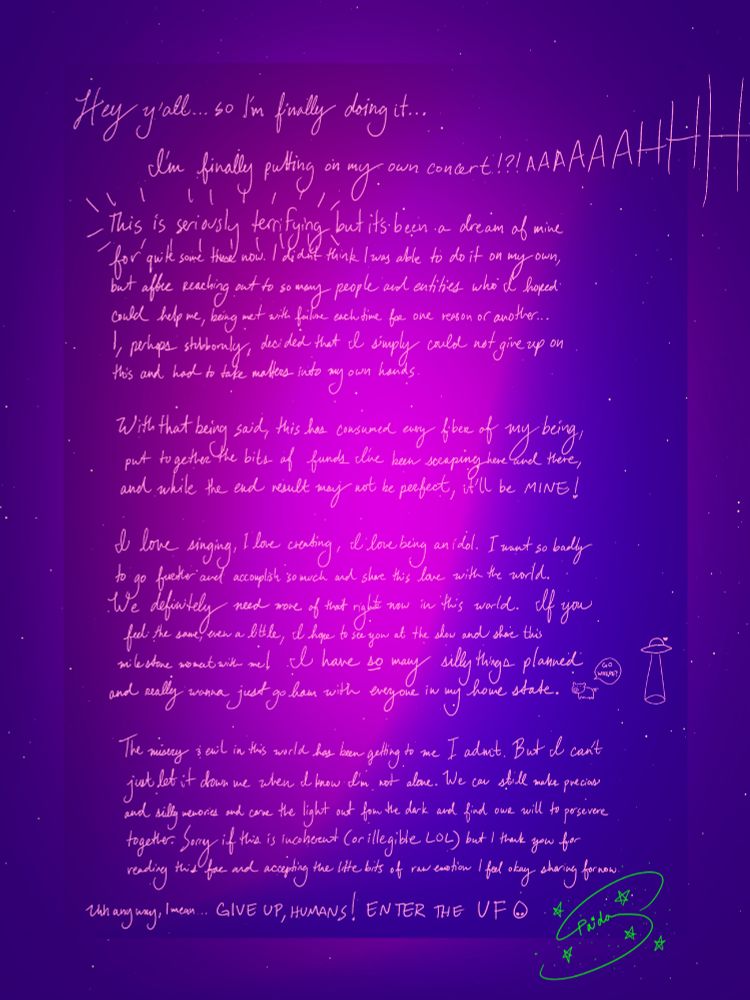 Hey y'all... so I'm finally doing it...
I'm finally putting on my own concert!?! AAAAAAHHHH
This is seriously terrifying but it's been a dream of mine
for quite some time now. I didn't think I was able to do it on my own,
but after reaching out to so many people and entities who I hoped
could help me, being met with failure each time for one reason or another...
I, perhaps stubbornly, decided that I simply could not give up on
this and had to take matters into my own hands.
With that being said, this has consumed every fiber of my being,
put together the bits of funds I've been scraping here and there,
and while the end result may not be perfect, it'll be MINE!
I love singing, I love creating, I love being an idol. I want so badly
to go further and accomplish so much and share this love with the world.
We definitely need more of that right now in this world. If you
feel the same, even a little, I hope to see you at the show and share this
milestone moment with me! I have so many silly things planned
and really wanna just go ham with everyone in my home state.
GO
The misery & evil in this world has been getting to me I admit. But I can't
just let it drown me when I know I'm not alone. We can still make precious
and silly memories and carve the light out from the dark and find our will to persevere
together. Sorry if this is incoherent (or illegible LOL) but I thank you for
reading this far and accepting the little bits of raw emotion I feel okay sharing for now.
Uhh anyway, I mean... GIVE UP, HUMANS! ENTER THE UFO